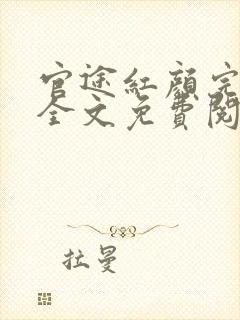 官途紅顏完
全文免費閱
拉曼